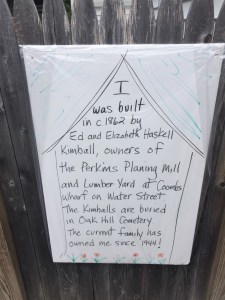 I
was built
in c.1862 by
Ed and Elizabeth Haskell
Kimball, owners of
the Perkins Planing Mill
and Lumber Yard at Coombs
Wharf on Water Street
The Kimballs are buried
in Oak Hill Cemetery
The current family has
owned me since 1944!